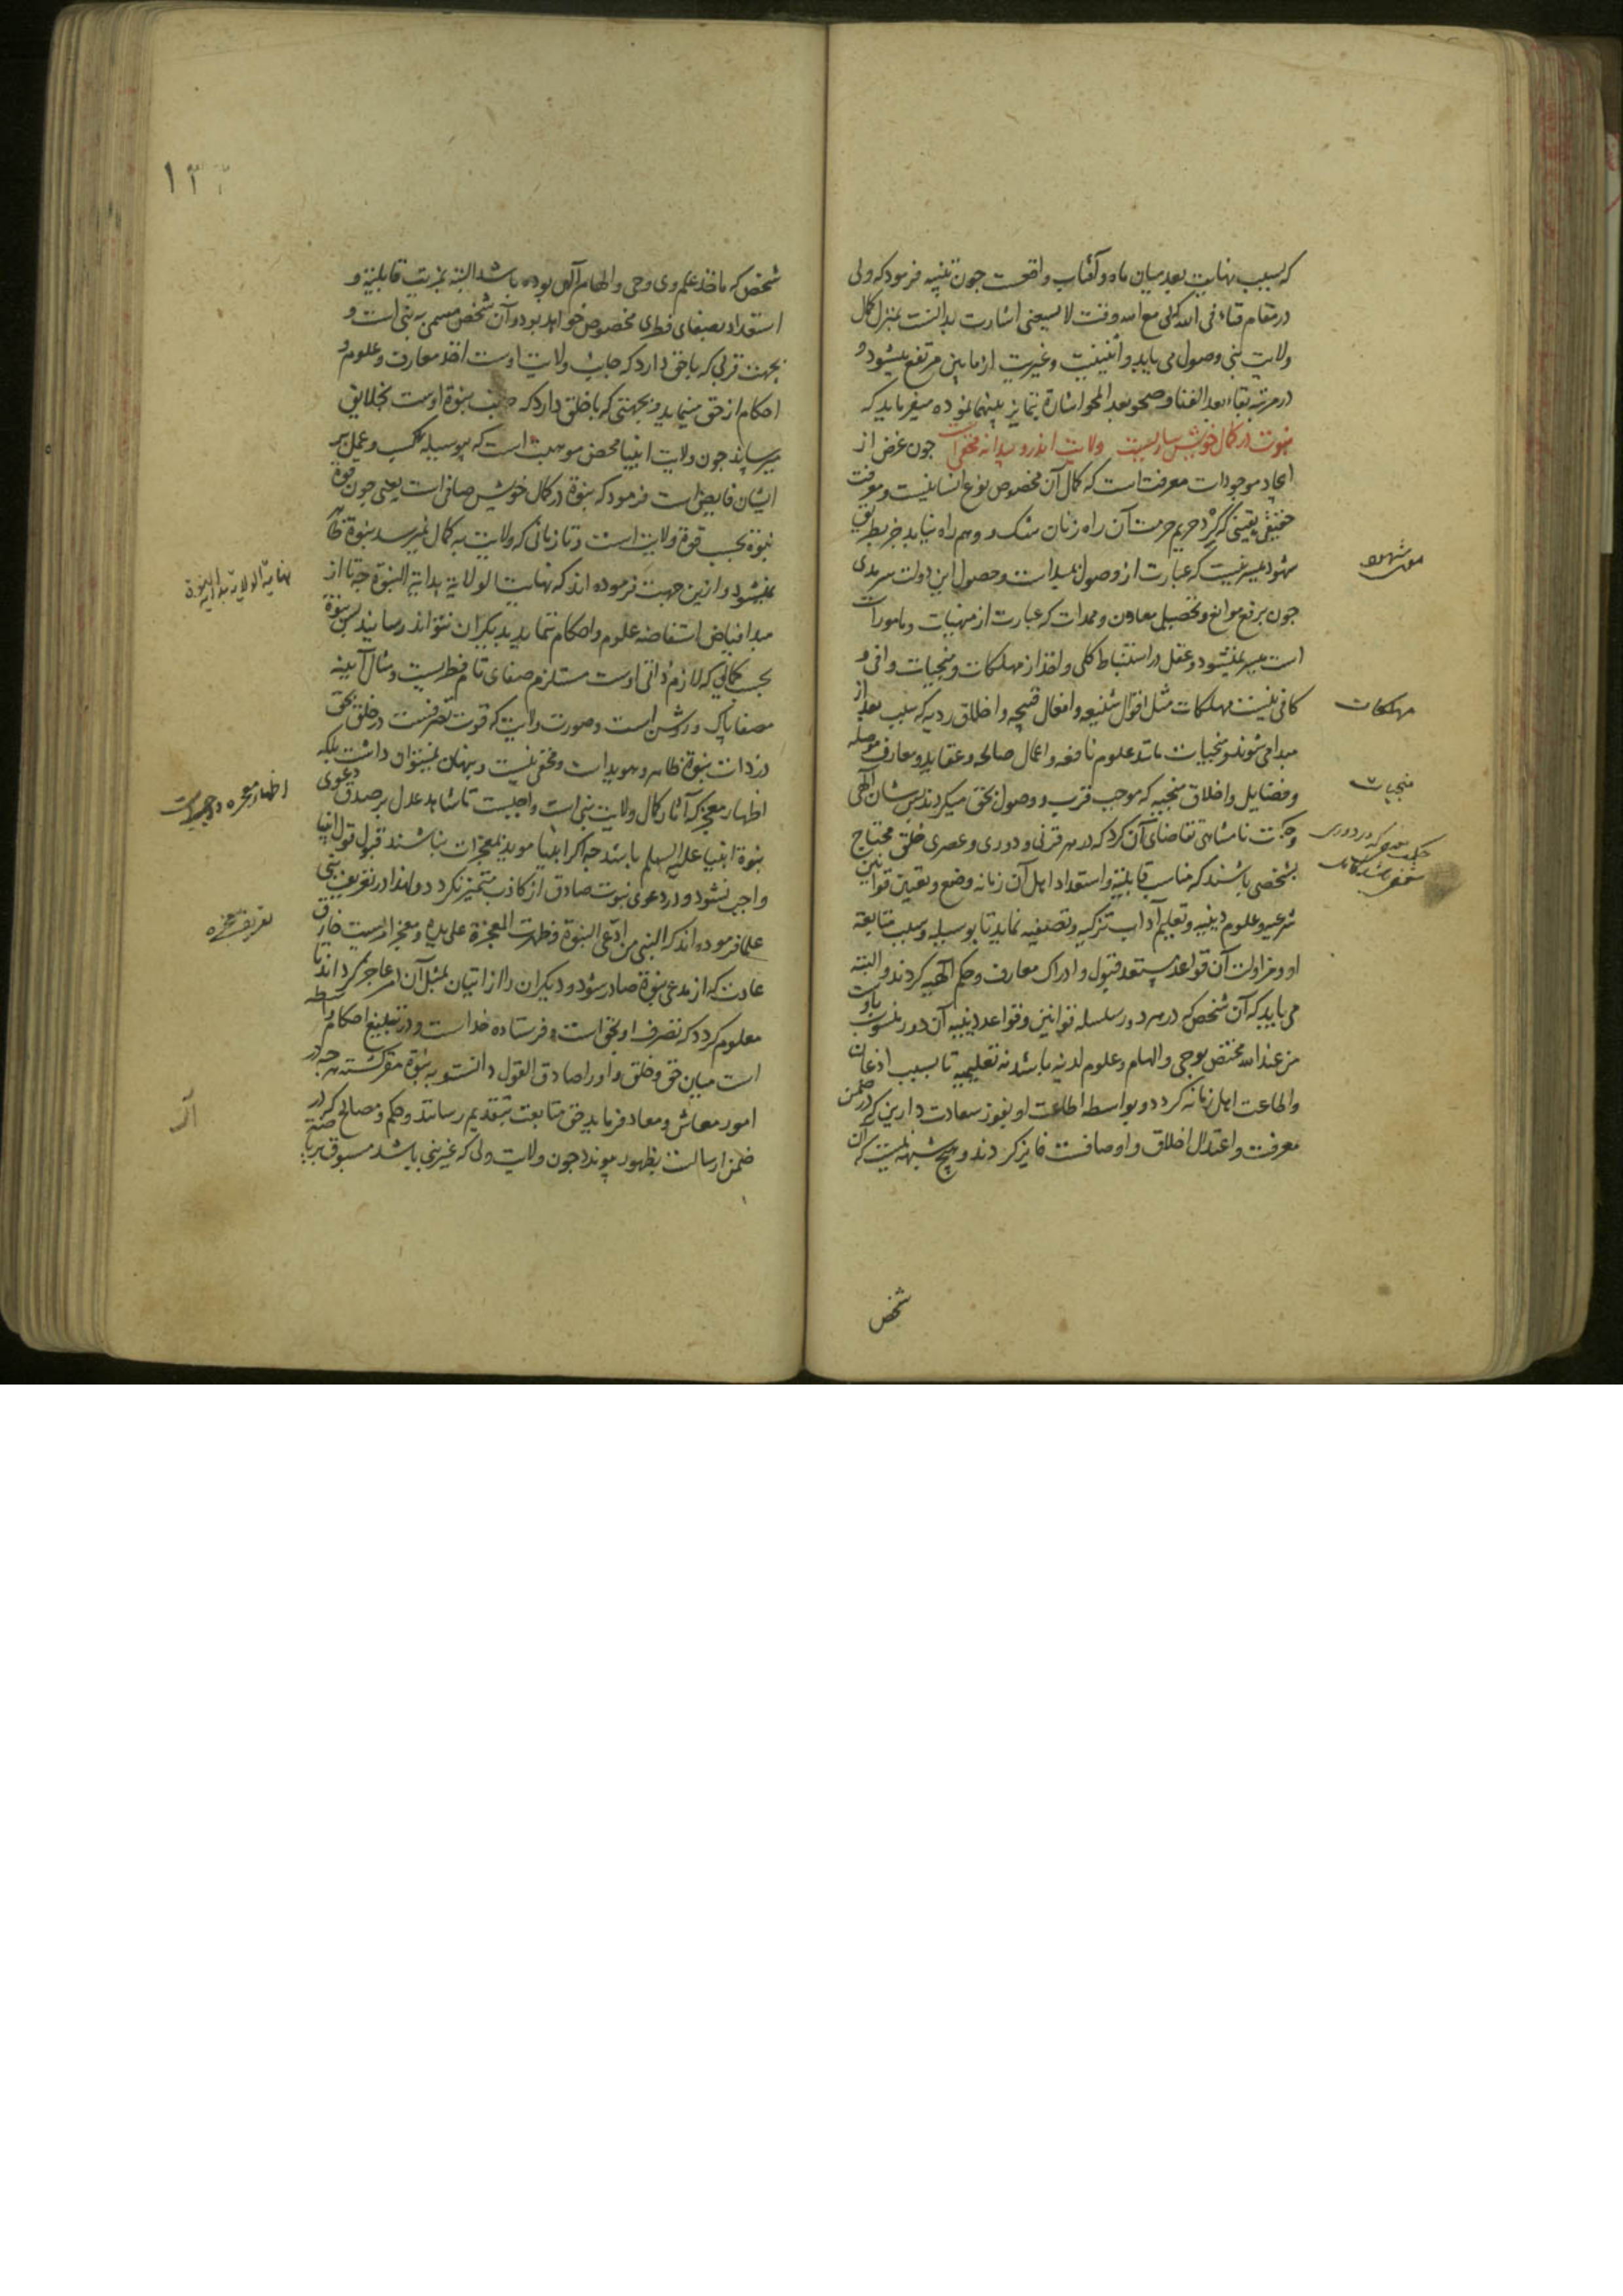 که بسبب نهایت بعد میان ماه و آفتاب واقعست چون تنبیه فرمود که ولی
در مقام فناء فی الله که لی مع الله وقت لا یسعنی اشارت بدانست بمنزل کمال
ولایت نبی وصول می یابد و اثنینیت و غیریت از مابین مرتفع میشود و
در مرتبه بقاء بعد الفنا و صحو بعد المحو اشارة بتمایز بینهما نموده میفرماید که
نبوت در کمال خویش صافیست ولایت اندرو پیدا نه مخفی است چون غرض از
ایجاد موجودات معرفت است که کمال آن مخصوص نوع انسانیست و معرفت
حقیقی یقینی که گرد حریم حرمت آن راه زنان شک و وهم راه نیابد جز بطریق
شهود میسر نیست که عبارت از وصول بمبداست و حصول این دولت سرمدی
چون برفع موانع و تحصیل معاون و ممدات که عبارت از منهیات و مامورات
است میسر نمیشود و عقل در استنباط کلی و اخذ از مهلکات و منجیات وافی و
کافی نیست مهلکات مثل اقوال شنیعه و افعال قبیحه و اخلاق ردیه که سبب بعد از
مبدا می شوند و منجیات مانند علوم نافعه و اعمال صالحه و عقاید و معارف موصله
و فضایل و اخلاق منجیه که موجب قرب و وصول بحق میگردند پس شان الهی
و حکمت نامتناهی تقاضای آن کرد که در هر قرنی و دوری و عصری خلق محتاج
بشخصی باشند که مناسب قابلیة و استعداد اهل آن زمانه وضع و تعیین قوانین
شرعیه و علوم دینیه و تعلیم آداب تزکیه و تصفیه نماید تا بوسیله و سبب متابعة
او و مزاولت آن قواعد مستعد قبول و ادراک معارف و حکم الهیه گردند و البته
می باید که آن شخص که در هر دور سلسله قوانین و قواعد دینیه آن دور منسوب باوست
من عند الله مختص بوحی و الهام و علوم لدنیه باشد نه تعلیمیه تا بسبب اذعان
و اطاعت اهل زمانه گردد و بواسطه اطاعت او بفوز سعادت دارین که در ضمن
معرفت و اعتدال اخلاق و اوصافست فایز گردند و هیچ شبهه نیست که آن
شهود
مهلکات
منجیات
شخص
۱۳۲
شخص که ماخذ علم وی وحی و الهام الهی بوده باشد البته بمزیت قابلیة و
استعداد بصفای فطری مخصوص خواهد بود و آن شخص مسمی به نبی است و
بجهت قربی که با حق دارد که جانب ولایت اوست اخذ معارف و علوم و
احکام از حق مینماید و بجهتی که با خلق دارد که جانب نبوة اوست بخلایق
میرساند چون ولایت انبیا محض موهبت است که بی وسیله کسب و عمل بر
ایشان فایض است فرمود که نبوة در کمال خویش صافی است یعنی چون قوة
نبوة بحسب قوة ولایت است و تا زمانی که ولایت به کمال نمیرسد نبوة ظاهر
نمیشود و ازین جهت فرموده اند که نهایت الولایة بدایة النبوة چه تا از
مبدا فیاض استفاضه علوم و احکام ننماید بدیگران نتواند رسانید پس نبوة
بحسب کمالی که لازم ذاتی اوست مستلزم صفای تام فطریست و مثال آیینه
مصفا پاک و روشن است و صورت ولایت که قوت تصرفست در خلق بحق
در ذات نبوة ظاهر و هویداست و مخفی نیست و پنهان نمیتوان داشت بلکه
اظهار معجز که آثار کمال ولایت نبی است واجبست تا شاهد عدل بر صدق دعوی
نبوة انبیا علیه السلم باشد چه اگر انبیا موید بمعجزات نباشند قبول قول انبیا
واجب نشود و در دعوی نبوت صادق از کاذب متمیز نگردد و لهذا در تعریف نبی
علما فرموده اند که النبی من ادّعی النبوة و ظهرت المعجزة علی یده و معجز امریست خارق
عادت که از مدعی نبوة صادر شود و دیگران را از اتیان بمثل آن عاجز گرداند تا
معلوم گردد که تصرف او بحق است و فرستاده خداست و در تبلیغ احکام واسطه
است میان حق و خلق و او را صادق القول دانسته به نبوة مقر گشته هر چه در
امور معاش و معاد فرماید حق متابعت بتقدیم رسانند و حکم و مصالح که در
ضمن ارسالست بظهور پیوندد چون ولایت ولی که غیر نبی باشد مسبوق بریاضة
نهایة الولایة بدایة النبوة
اظهار معجزه واجبست
تعریف معجزه